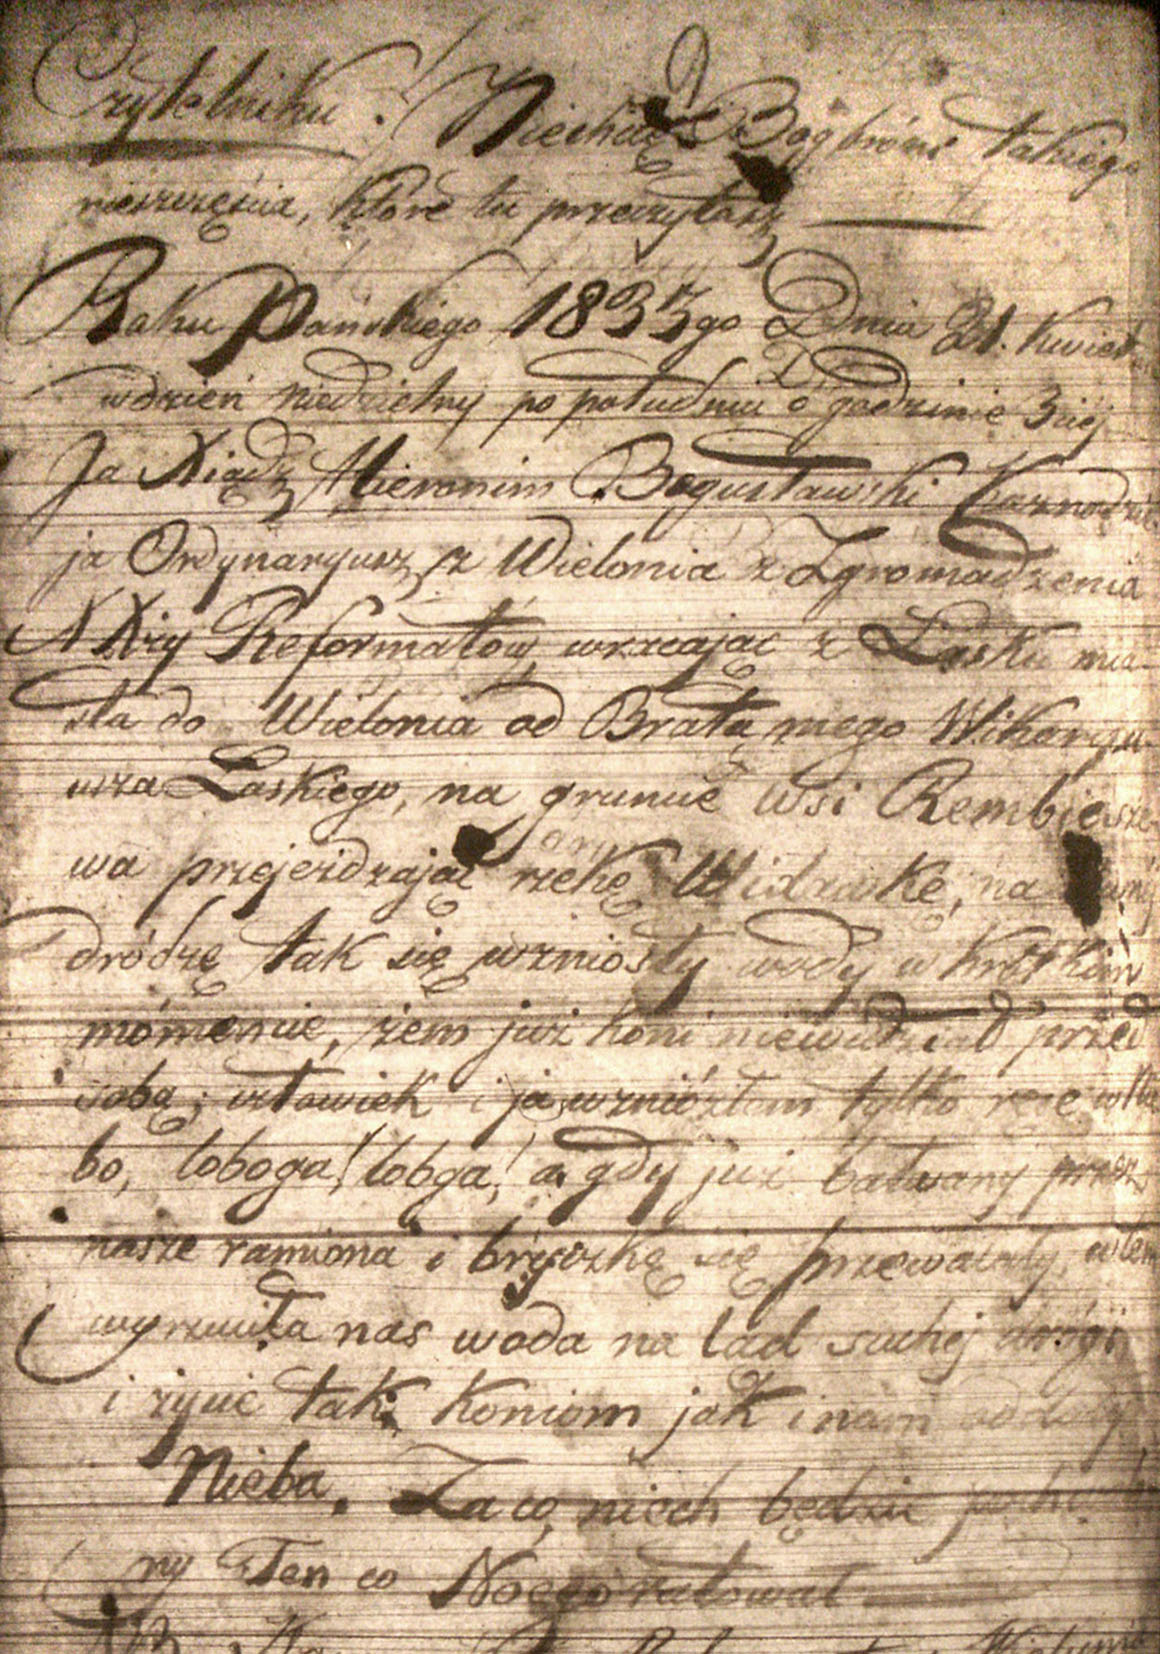 Czytelniku! Niechaj Bóg bróni takiego
nieszczęścia, które tu przeczytasz
Roku Pańskiego 1833go Dnia 21. Kwiet
w dzień niedzielny po południu o godzinie 3ciej
Ja Xiądz Hieronim Bogusławski Kaznodzie
ja Ordynaryusz z Wielonia z Zgromadzenia
XXży Reformatów, wracając z Łasku mia
sta do Wielonia od Brata mego Wikaryu
usza Łaskiego, na gruncie wsi Rembiesze
wa przejeżdzając rzekę Widawkę, na
dródze tak się wzniosły wody w krótkim
mómencie, żem już koni niewidział przed
sobą; człowiek i ja wzniózłem tylko ręce w Nie
bo, loboga! lobga! a gdy już bałwany przez
nasze ramiona i bryczkę się przewalały, wtem
wyrzuciła nas woda na ląd suchej drógi,
i życie tak koniom jak i nam oddały
Nieba. Za co niech będzie
ny Ten co Noego ratował
NB